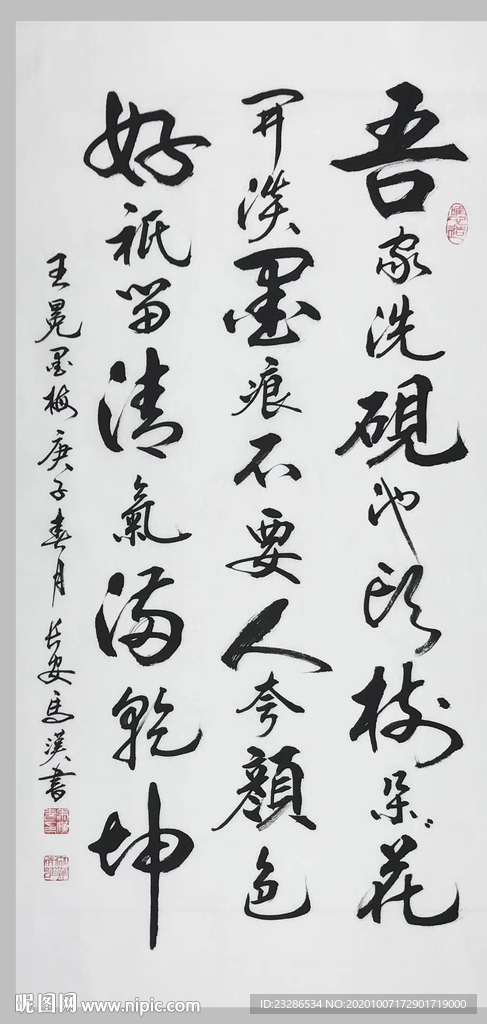 吾家洗硯池頭樹朵々花
開淡墨痕不要人夸顏色
好衹留清氣滿乾坤
王冕墨梅庚子春月長安馬漢書
昵图网 www.nipic.com
ID:23286534 NO:20201007172901719000